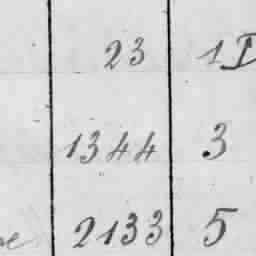 23 1
1344 3
2133 5